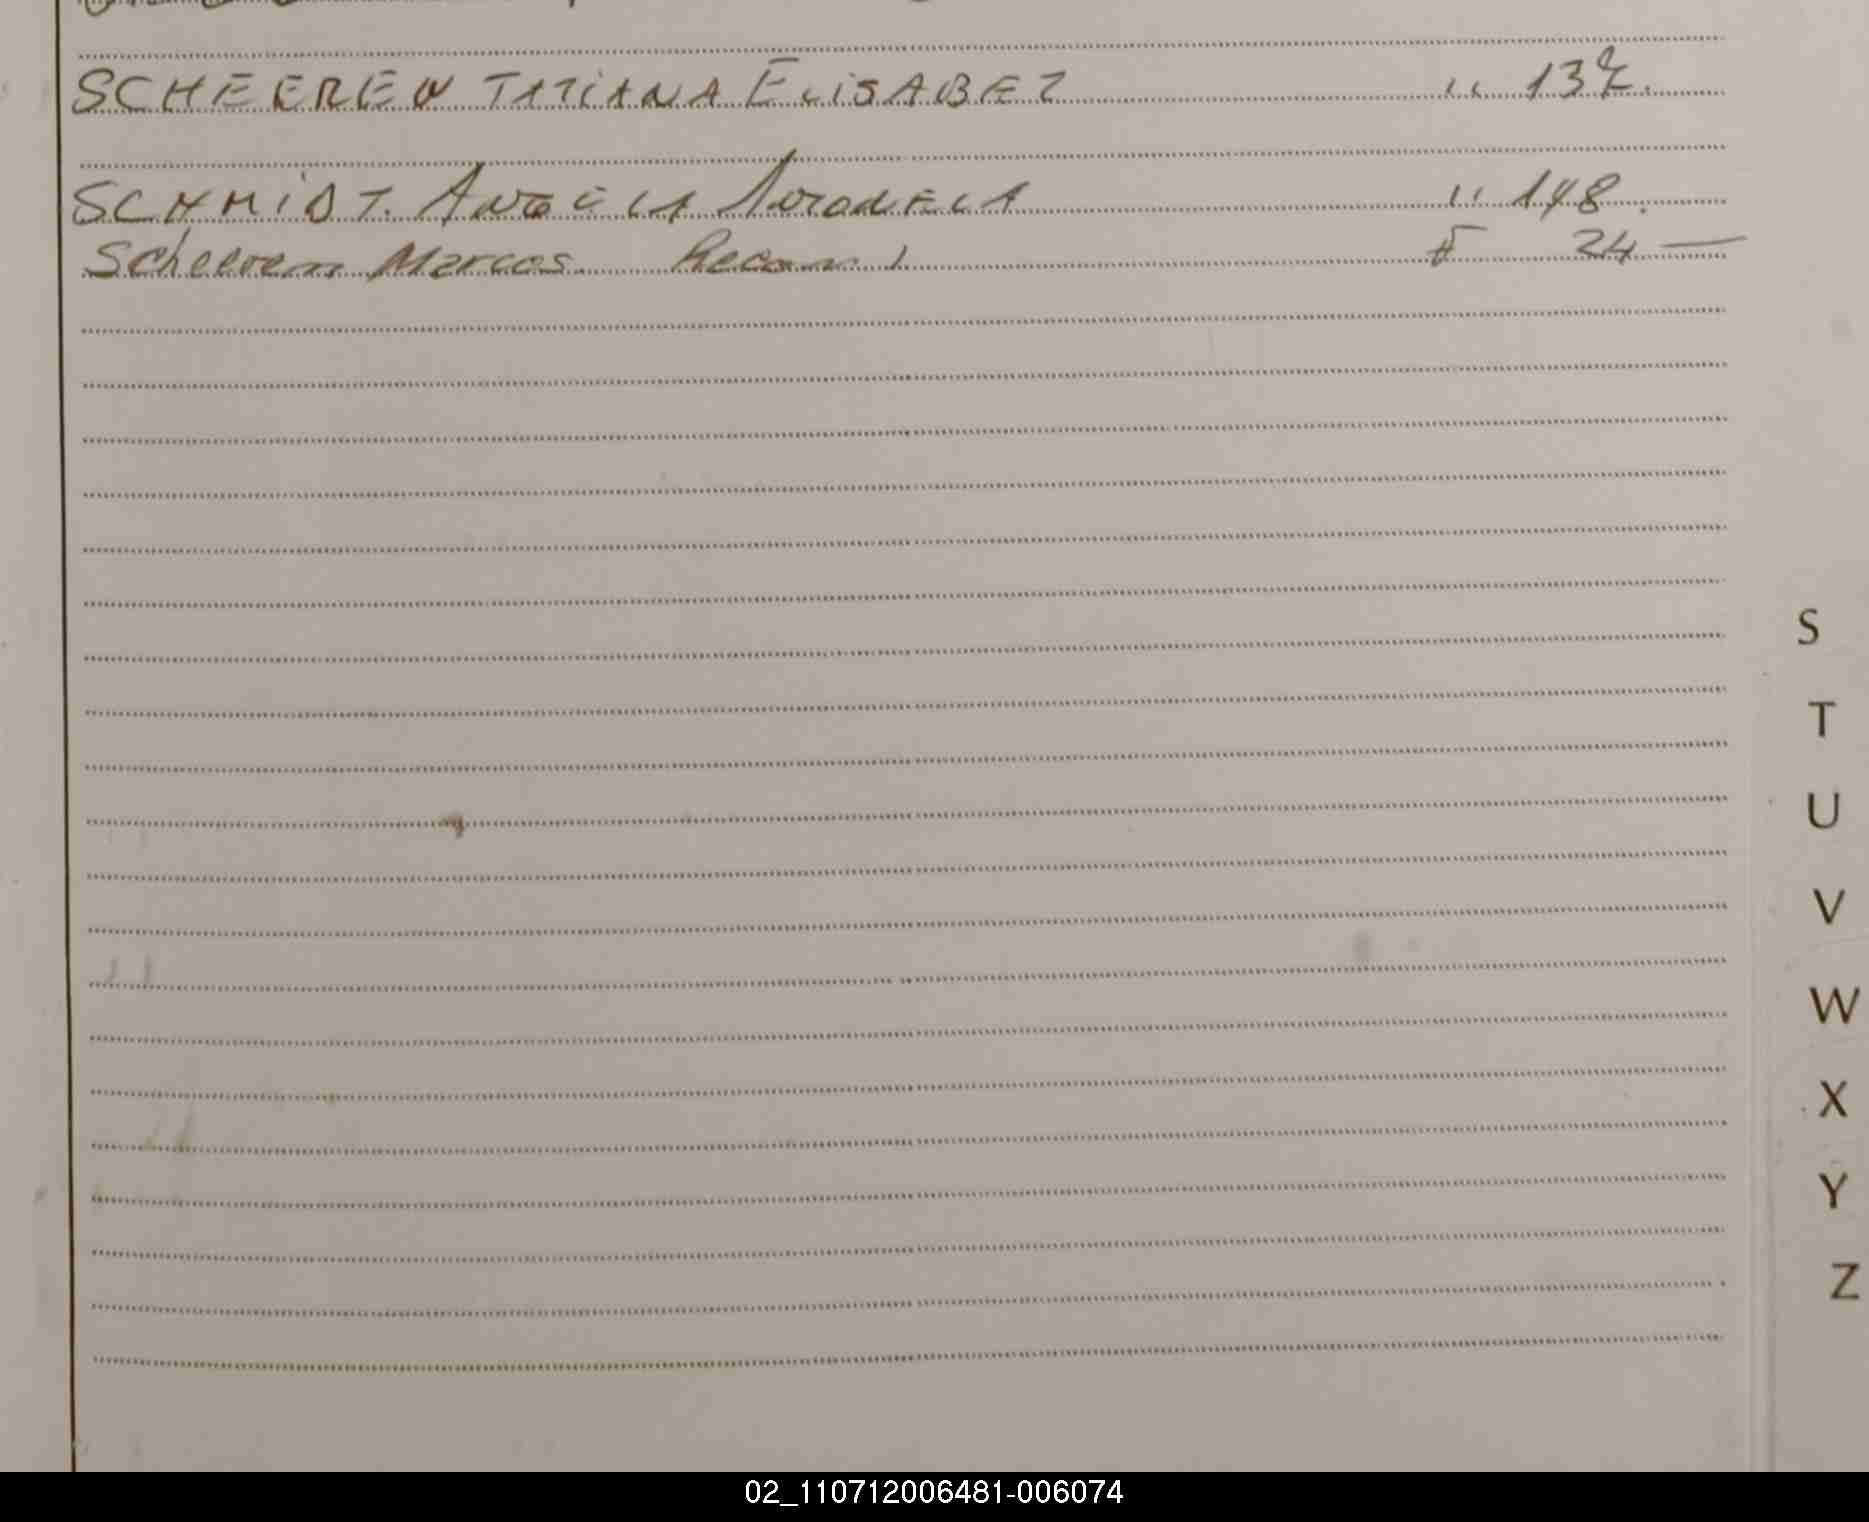 SCHEEREN TATIANA ELISABET " 132.
SCHMIDT. ANGELA " 148.
Scheeren Marcos. Recon 24 —
S
T
U
V
W
X
Y
Z
02_110712006481-006074